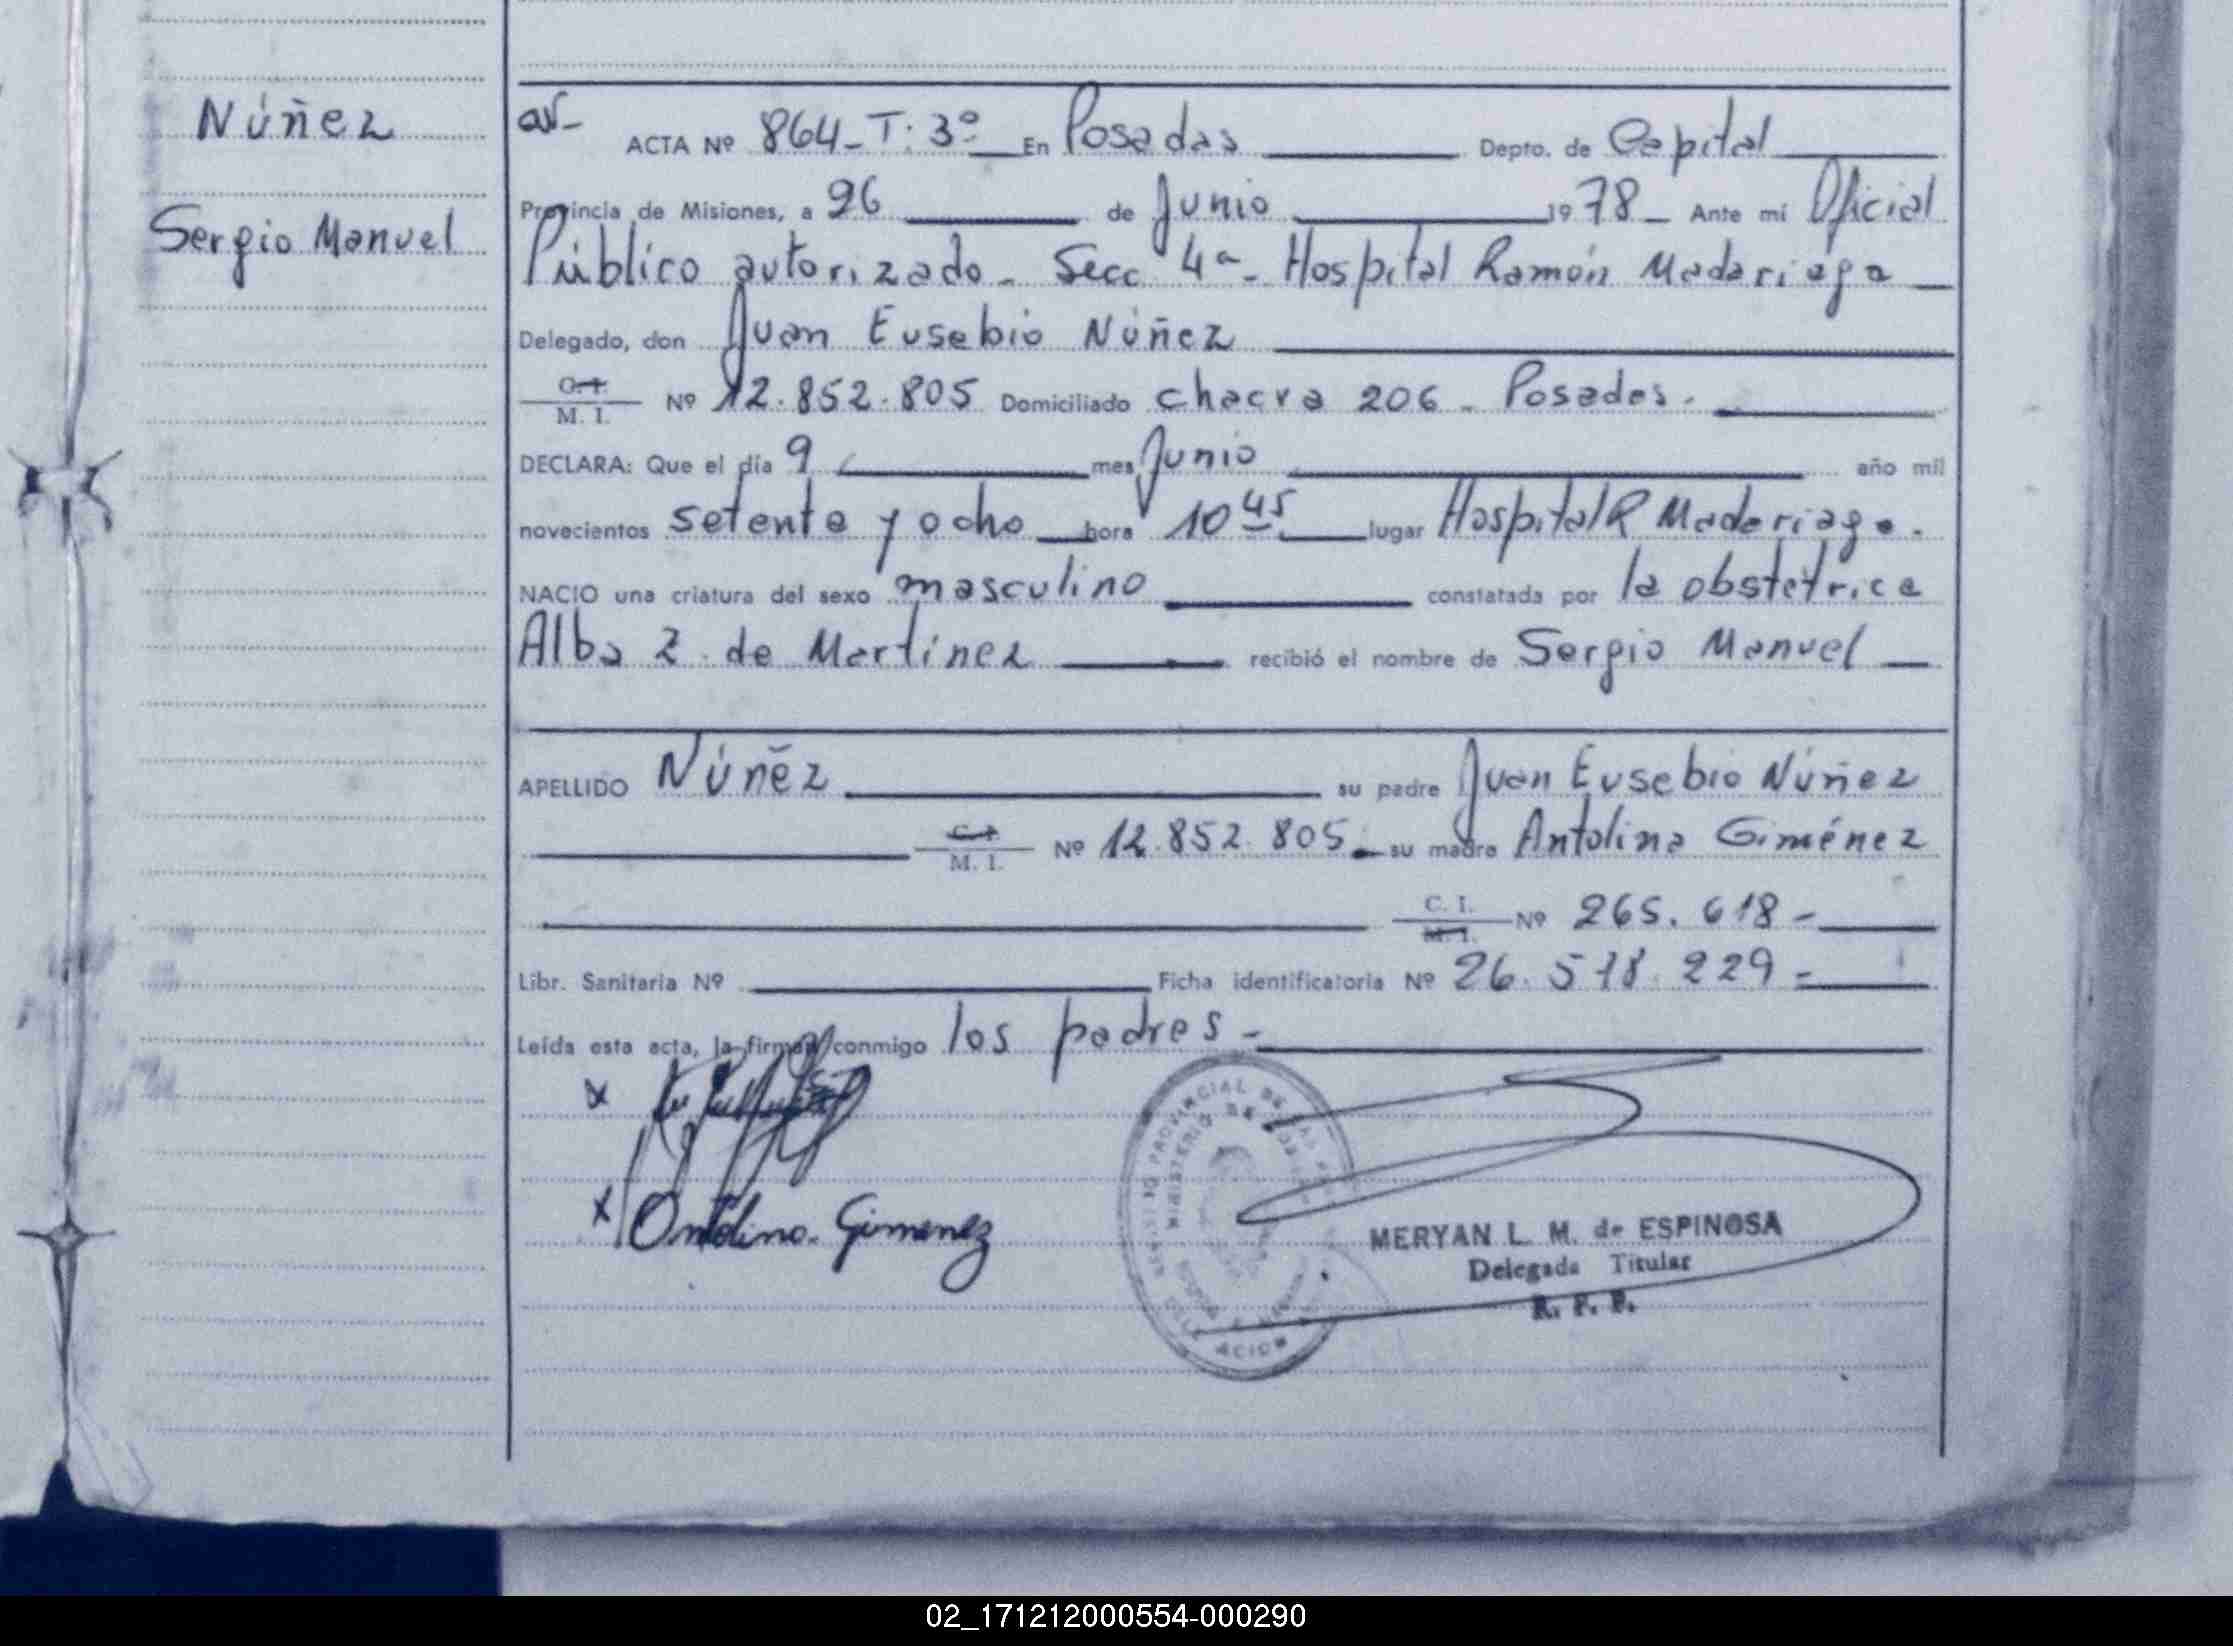 Núñez
Sergio Manuel
ACTA Nº 864-T: 3º En Posadas Depto. de Capital
Provincia de Misiones, a 26 de Junio 1978 - Ante mí Oficial
Público autorizado - Secc 4ª - Hospital Ramón Madariaga
Delegado, don Juan Eusebio Núñez
C. I. / M. I. Nº 12.852.805 Domiciliado chacra 206 - Posadas.
DECLARA: Que el día 9 mes Junio año mil
novecientos setenta y ocho hora 10 45 lugar Hospital R Madariaga.
NACIO una criatura del sexo masculino constatada por la obstétrica
Alba Z. de Martínez recibió el nombre de Sergio Manuel
APELLIDO Núñez su padre Juan Eusebio Núñez
C. I. / M. I. Nº 12.852.805 - su madre Antolina Giménez
C. I. / M. I. Nº 265.618 -
Libr. Sanitaria Nº Ficha identificatoria Nº 26.518.229 =
Leída esta acta, la firman conmigo los padres -
x
x Antolina Gimenez
MERYAN L. M. de ESPINOSA
Delegada Titular
R. P. P.
02_171212000554-000290